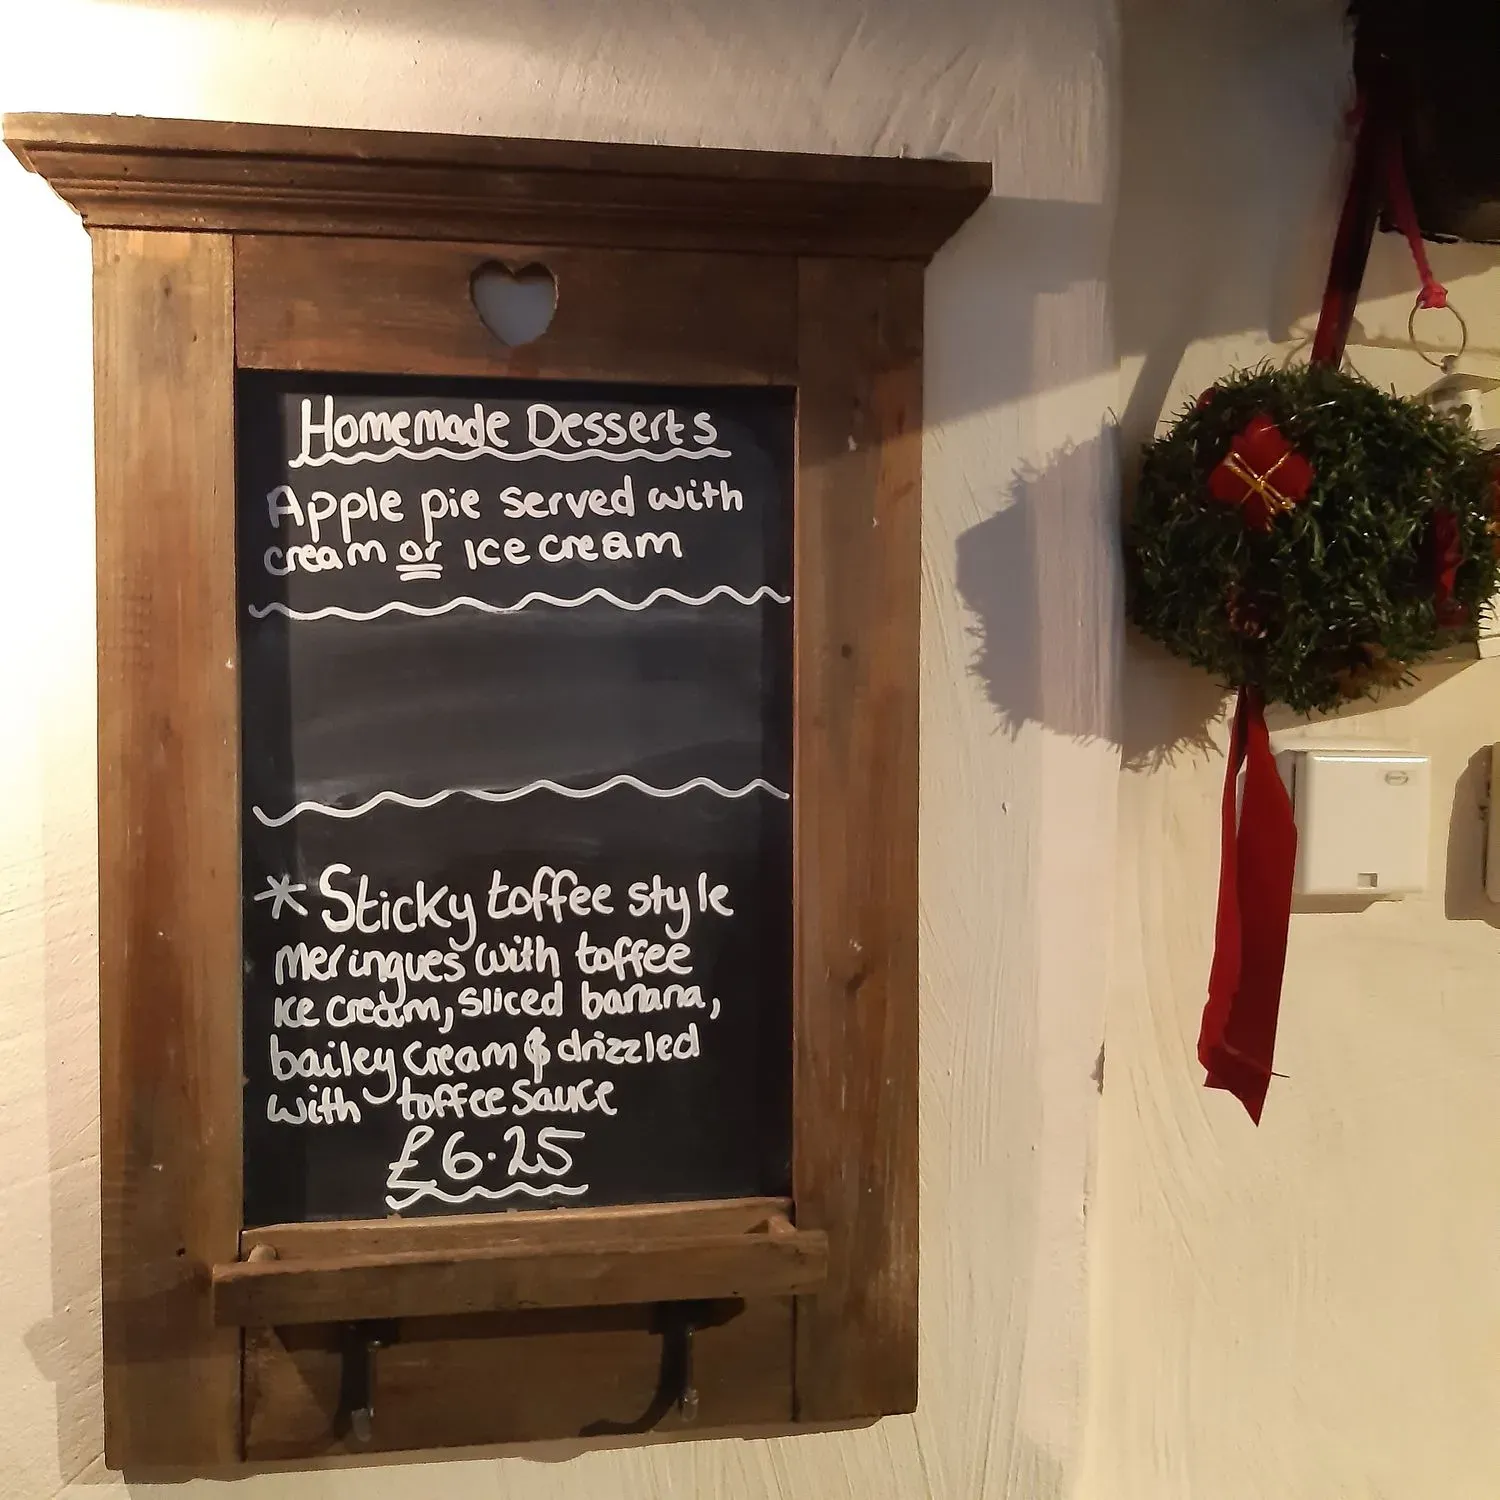 Homemade Desserts
Apple pie served with
cream or Ice cream
* Sticky toffee style
meringues with toffee
Ice cream, sliced banana,
bailey cream & drizzled
with toffee sauce
£6.25